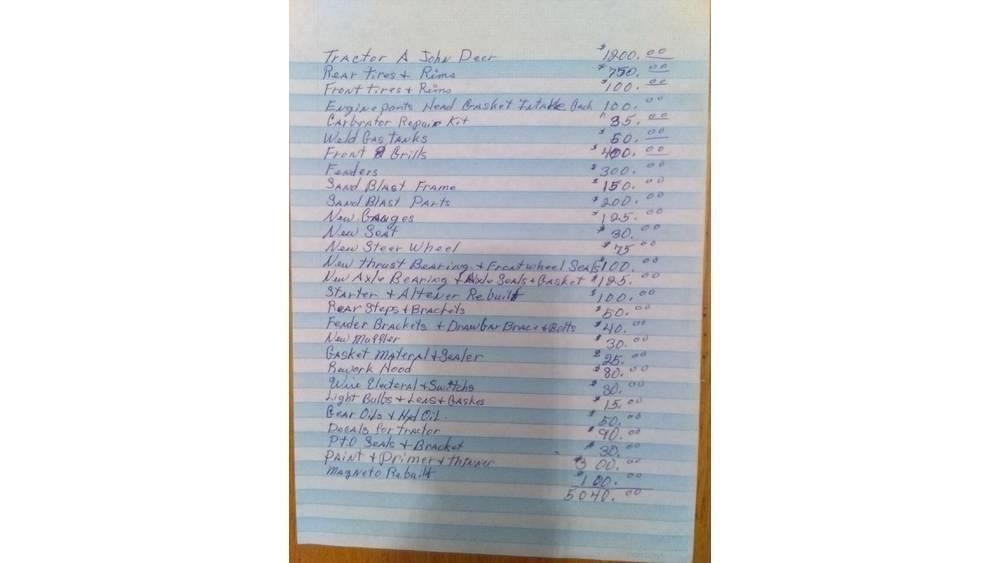 Tractor A John Deer $1200.00
Rear Tires + Rims $750.00
Front tires + Rims $100.00
Engine parts Head Gasket Intake Gask 100.00
Carbrator Repair Kit $35.00
Weld Gas Tanks $50.00
Front Grills $400.00
Fenders $300.00
Sand Blast Frame $150.00
Sand Blast Parts $200.00
New Gauges $125.00
New Seat $30.00
New Steer Wheel $75.00
New thrust Bearing + Front wheel Seals $100.00
New Axle Bearing + Axle Seals + Gasket $125.00
Starter + Altener Rebuilt $100.00
Rear Steps + Brackets $50.00
Fender Brackets + Draw Bar Brace + Bolts $40.00
New Muffler $30.00
Gasket Materal + Sealer $25.00
Rework Hood $80.00
Wire Electeral + Switchs $30.00
Light Bulbs + Lens + Gaskes $15.00
Gear Oils + Hyd Oil. $50.00
Decals for tractor $90.00
P.t.O Seals + Bracket $30.00
Paint + Primer + thinner $300.00
Magneto Rebuilt $100.00
5040.00